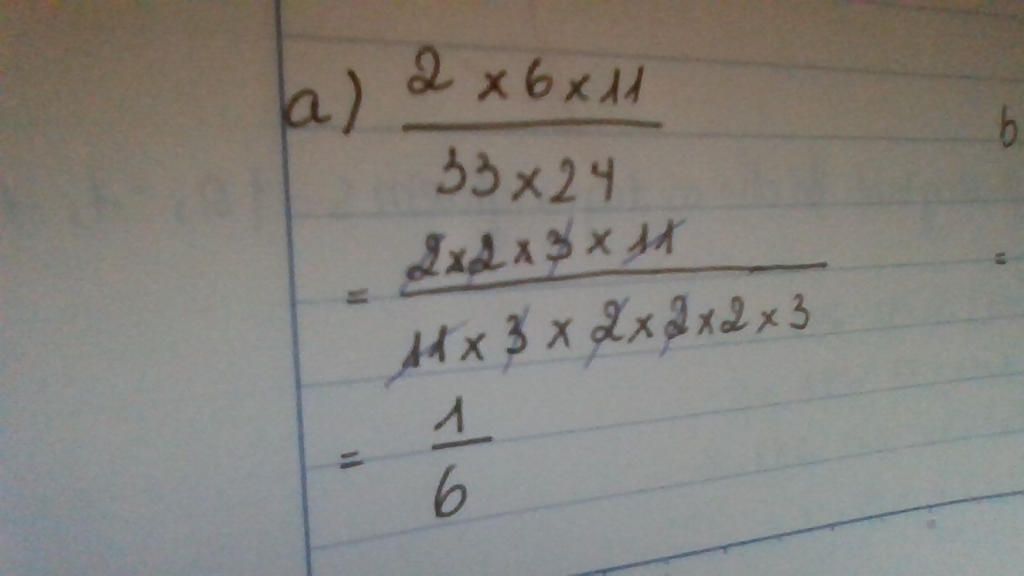 a) 2 × 6 × 11
33 × 24
b
= 2 × 2 × 3 × 11
11 × 3 × 2 × 2 × 2 × 3
=
= 1
6